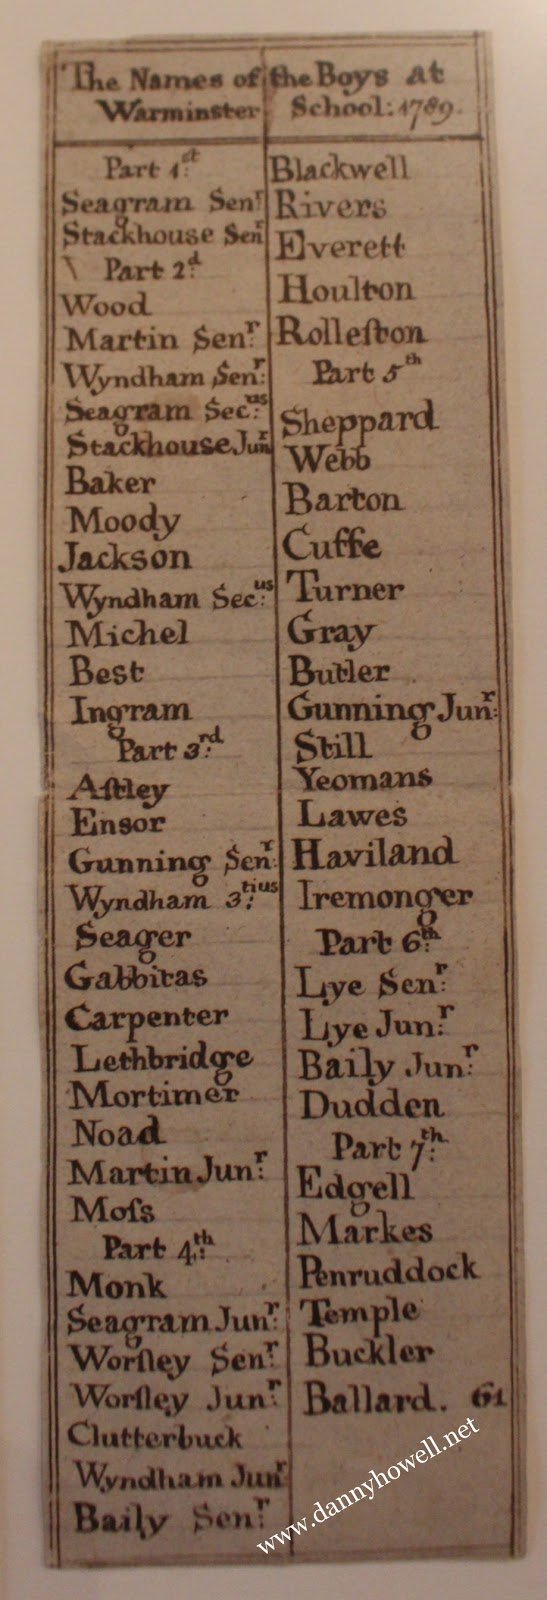 The Names of the Boys at
Warminster School: 1789.
Part 1.st
Seagram Sen.r
Stackhouse Sen.r
Part 2.d
Wood
Martin Sen.r
Wyndham Sen.r
Seagram Sec.us
Stackhouse Jun.r
Baker
Moody
Jackson
Wyndham Sec.us
Michel
Best
Ingram
Part 3.rd
Aſtley
Ensor
Gunning Sen.r
Wyndham 3.tius
Seager
Gabbitas
Carpenter
Lethbridge
Mortimer
Noad
Martin Jun.r
Moſs
Part 4.th
Monk
Seagram Jun.r
Worſley Sen.r
Worſley Jun.r
Clutterbuck
Wyndham Jun.r
Baily Sen.r
Blackwell
Rivers
Everett
Houlton
Rolleſton
Part 5th
Sheppard
Webb
Barton
Cuffe
Turner
Gray
Butler
Gunning Jun.r
Still
Yeomans
Lawes
Haviland
Iremonger
Part 6.th
Lye Sen.r
Lye Jun.r
Baily Jun.r
Dudden
Part 7.th
Edgell
Markes
Penruddock
Temple
Buckler
Ballard. 61
www.dannyhowell.net